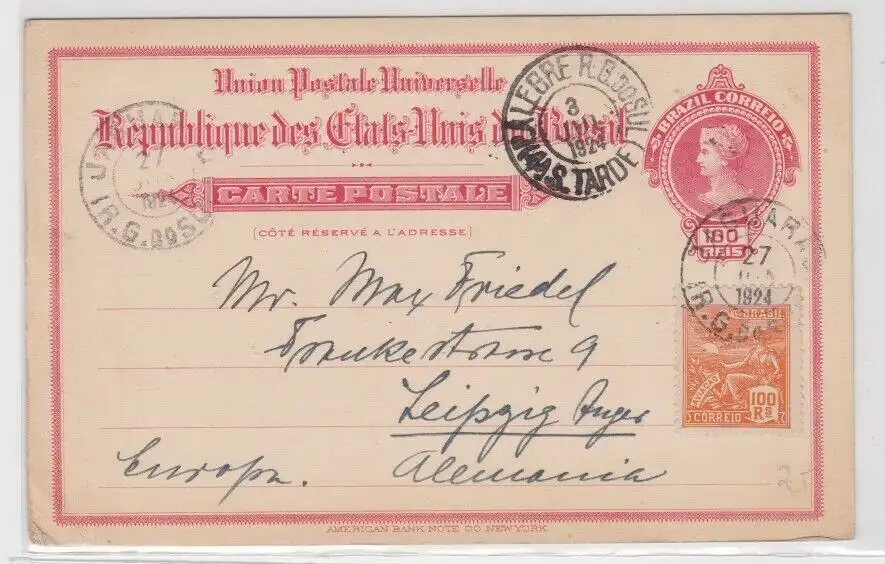 Union Postale Universelle
République des États-Unis du Brésil
CARTE POSTALE
(CÔTÉ RÉSERVÉ A L'ADRESSE)
BRAZIL CORREIO
100
REIS
ALEGRE R.G. DO SUL
3
1924
S. TARDE
27
(R.G. DO SUL
27
1924
(R.G.
BRASIL
AVIAÇÃO
100
Rs
CORREIO
Mr. Max Friedel
9
Leipzig
Europa. Alemania
2-
AMERICAN BANK NOTE CO NEW YORK